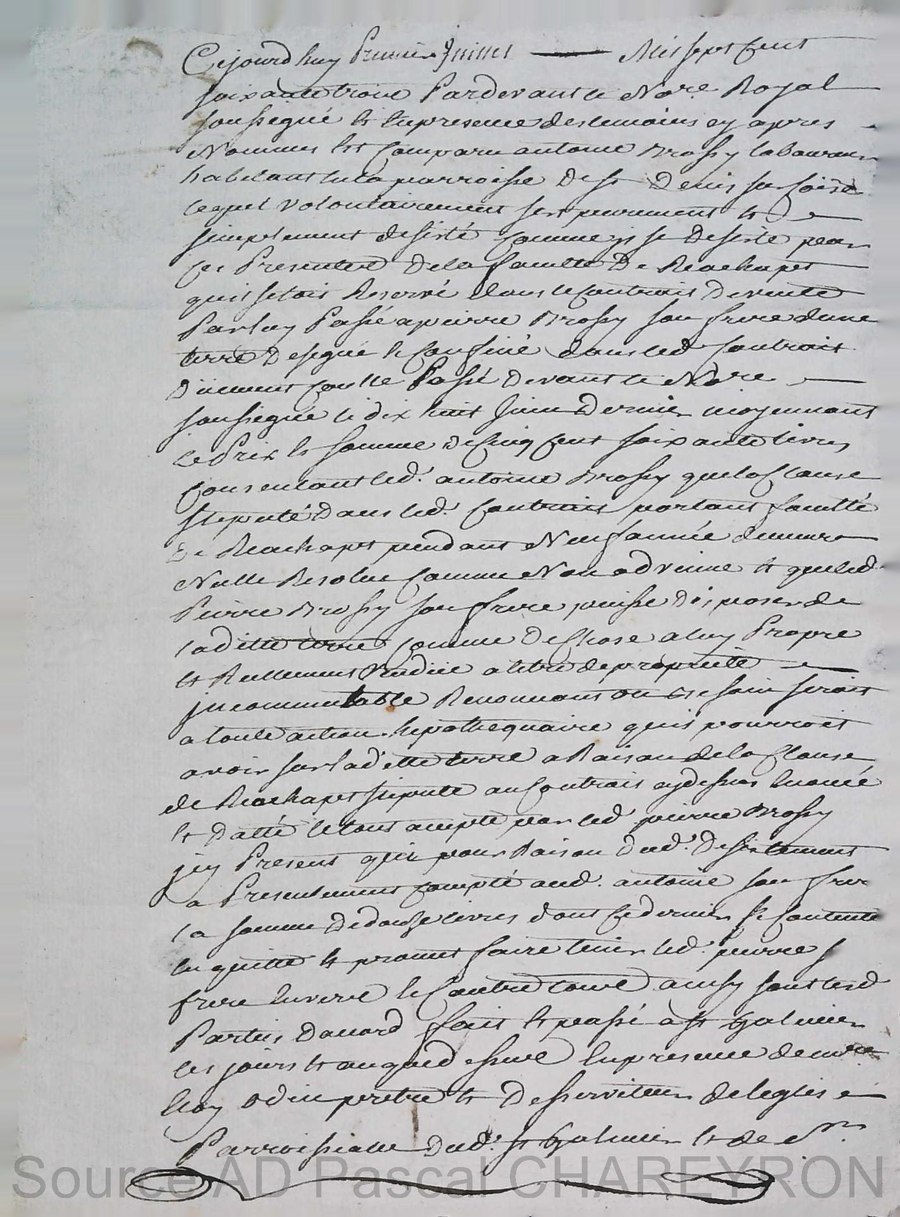 Cejourd'huy Premier Juillet — Mil sept cent
soixante trois Pardevant le No.re Royal
soussigné et en presence des temoins cy apres
Nommes est comparu antoine Brossy laboureur
habitant en la parroisse de st Denis sur Coise
lequel volontairement sest purement et
simplement desisté comme il se desiste par
ces Presentes de la faculté de Reachapt
qu'il setoit Reservé dans le Contrait de vente
Par luy Passé a pierre Brossy son frere d'une
terre designé et confiné dans led. Contrait
Passé devant le No.re
soussigné le dix huit Juin dernier moyennant
le Prix et somme de Cinq Cent soixante livres
Consentant led. antoine Brossy que la Clause
stiputé dans led. Contrait portant faculté
de Reachapt pendant Neuf année demeure
Nulle Resolue comme Non advenue et que led.
Pierre Brossy son frere puisse disposer de
laditte terre comme de Chose a luy Propre
et Reellement vendue a titre de proprieté
incommutable Renonceant
a toute action hipothequaire qu'il pourroit
avoir sur laditte terre a Raison de la Clause
de Reachapt stipulé au Contrait cy dessus enoncé
et datté le tout accepté par led. pierre Brossy
icy Present qui pour Raison dud. desistement
a Presentement compté aud. antoine son frere
la somme de douze livres dont ce dernier se contente
en quitte et promet faire tenir led. pierre s
frere envers et Contre tous ainsy sont lesd
Parties d'accord fait et passé a st Galmier
les jours et an que dessus en presence de
odin pretre et Desserviteur de leglise
Parroissialle dud. st Galmier et de Sr.
Source AD Pascal CHAREYRON